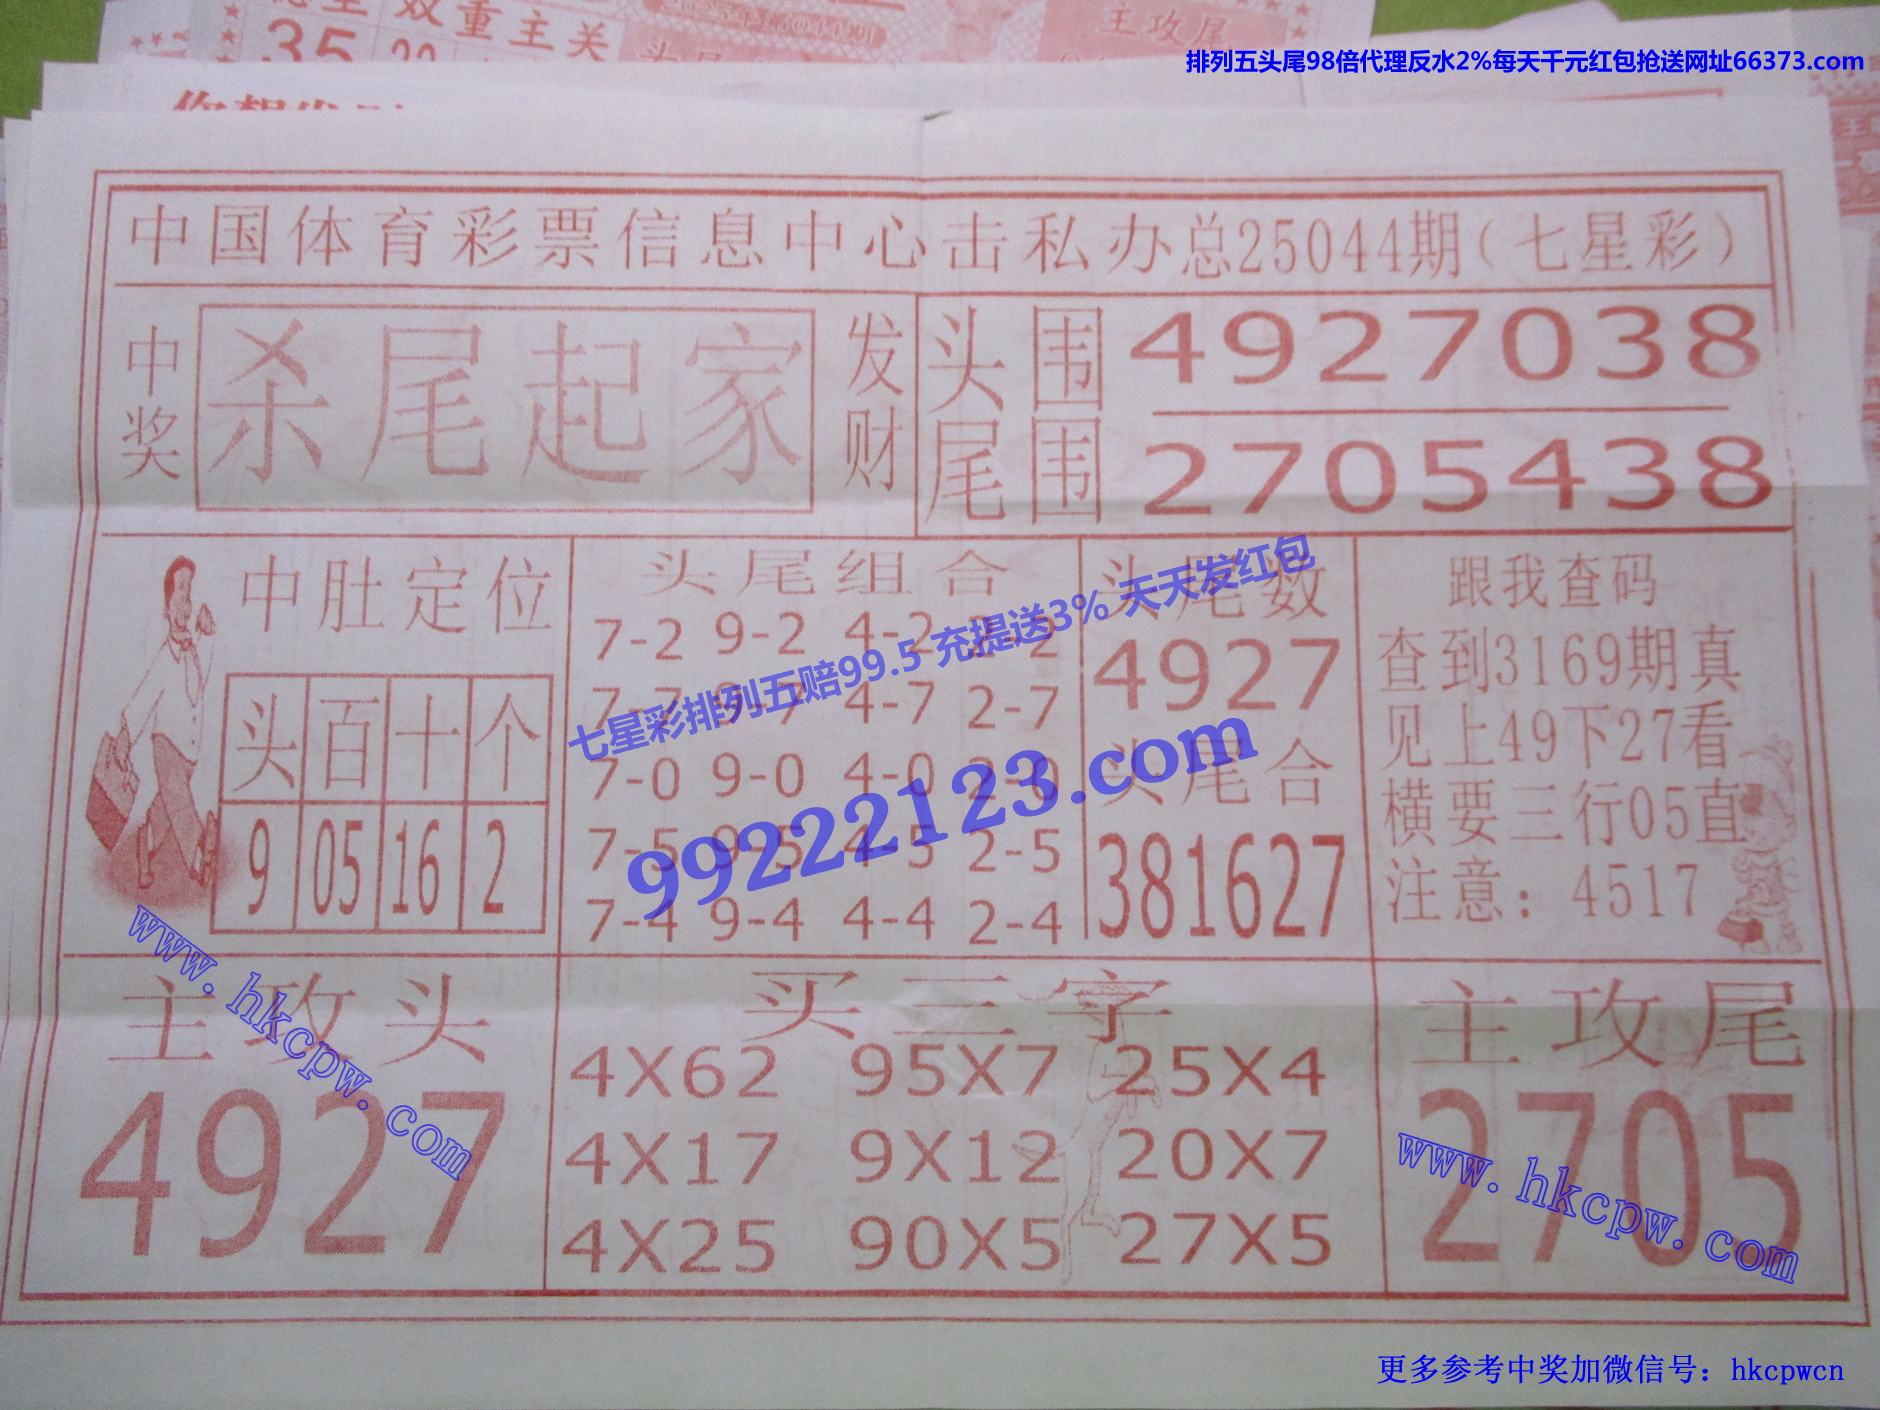 总25044期
主攻尾
双重主关
35
排列五头尾98倍代理反水2%每天千元红包抢送网址66373.com
中国体育彩票信息中心击私办总25044期(七星彩)
中奖
杀尾起家
发财
头围 4927038
尾围 2705438
中肚定位
头 百 十 个
9 05 16 2
头尾组合
7-2 9-2 4-2 2-2
7-7 9-7 4-7 2-7
7-0 9-0 4-0 2-0
7-5 9-5 4-5 2-5
7-4 9-4 4-4 2-4
头尾数
4927
头尾合
381627
跟我查码
查到3169期真
见上49下27看
横要三行05直
注意：4517
七星彩排列五赔99.5 充提送3% 天天发红包
99222123.com
主攻头
4927
买三字
4X62 95X7 25X4
4X17 9X12 20X7
4X25 90X5 27X5
主攻尾
2705
www.hkcpw.com
www.hkcpw.com
更多参考中奖加微信号：hkcpwcn